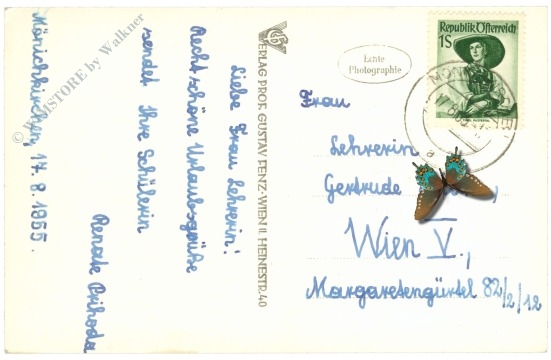 Mönichkirchen, 17.8.1955.
Liebe Frau Lehrerin!
Recht schöne Urlaubsgrüße
sendet Ihre Schülerin
Renate Prihoda
VERLAG PROF. GUSTAV FENZ·WIEN II. HEINESTR. 40
Echte
Photographie
Republik Österreich
1S
Frau
Lehrerin
Gertrude
Wien V.,
Margaretengürtel 82/2/12
by Walkner